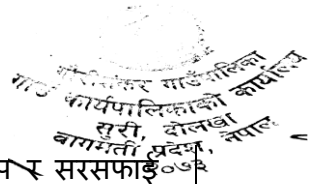 गौरीशंकर गाउँपालिका
गाउँ कार्यपालिकाको कार्यालय
सुरी, दोलखा
बागमती प्रदेश, नेपाल
२०७३
र सरसफाइ